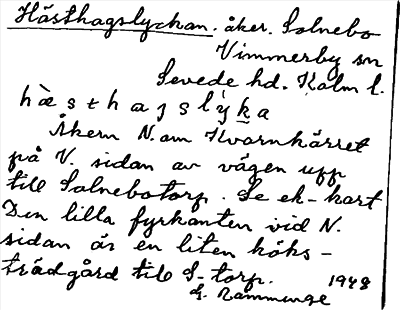 Hästhagslyckan. åker. Solnebo
Vimmerby sn
Sevede hd. Kalm l.
hæ̀sthagslýka
Åkern N. om Kvarnkärret
på V. sidan av vägen upp
till Solnebotorp. Se ek-kart
Den lilla fyrkanten vid N.
sidan är en liten köks-
trädgård till S-torp.
1948
G. Ramminge